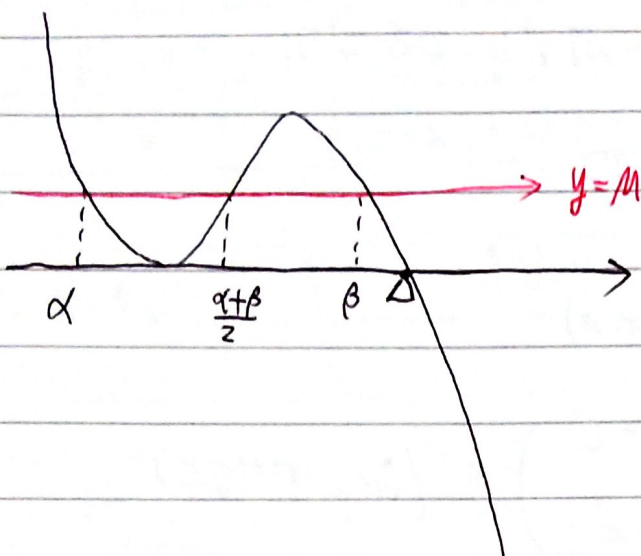 y = M
α
α+β
2
β